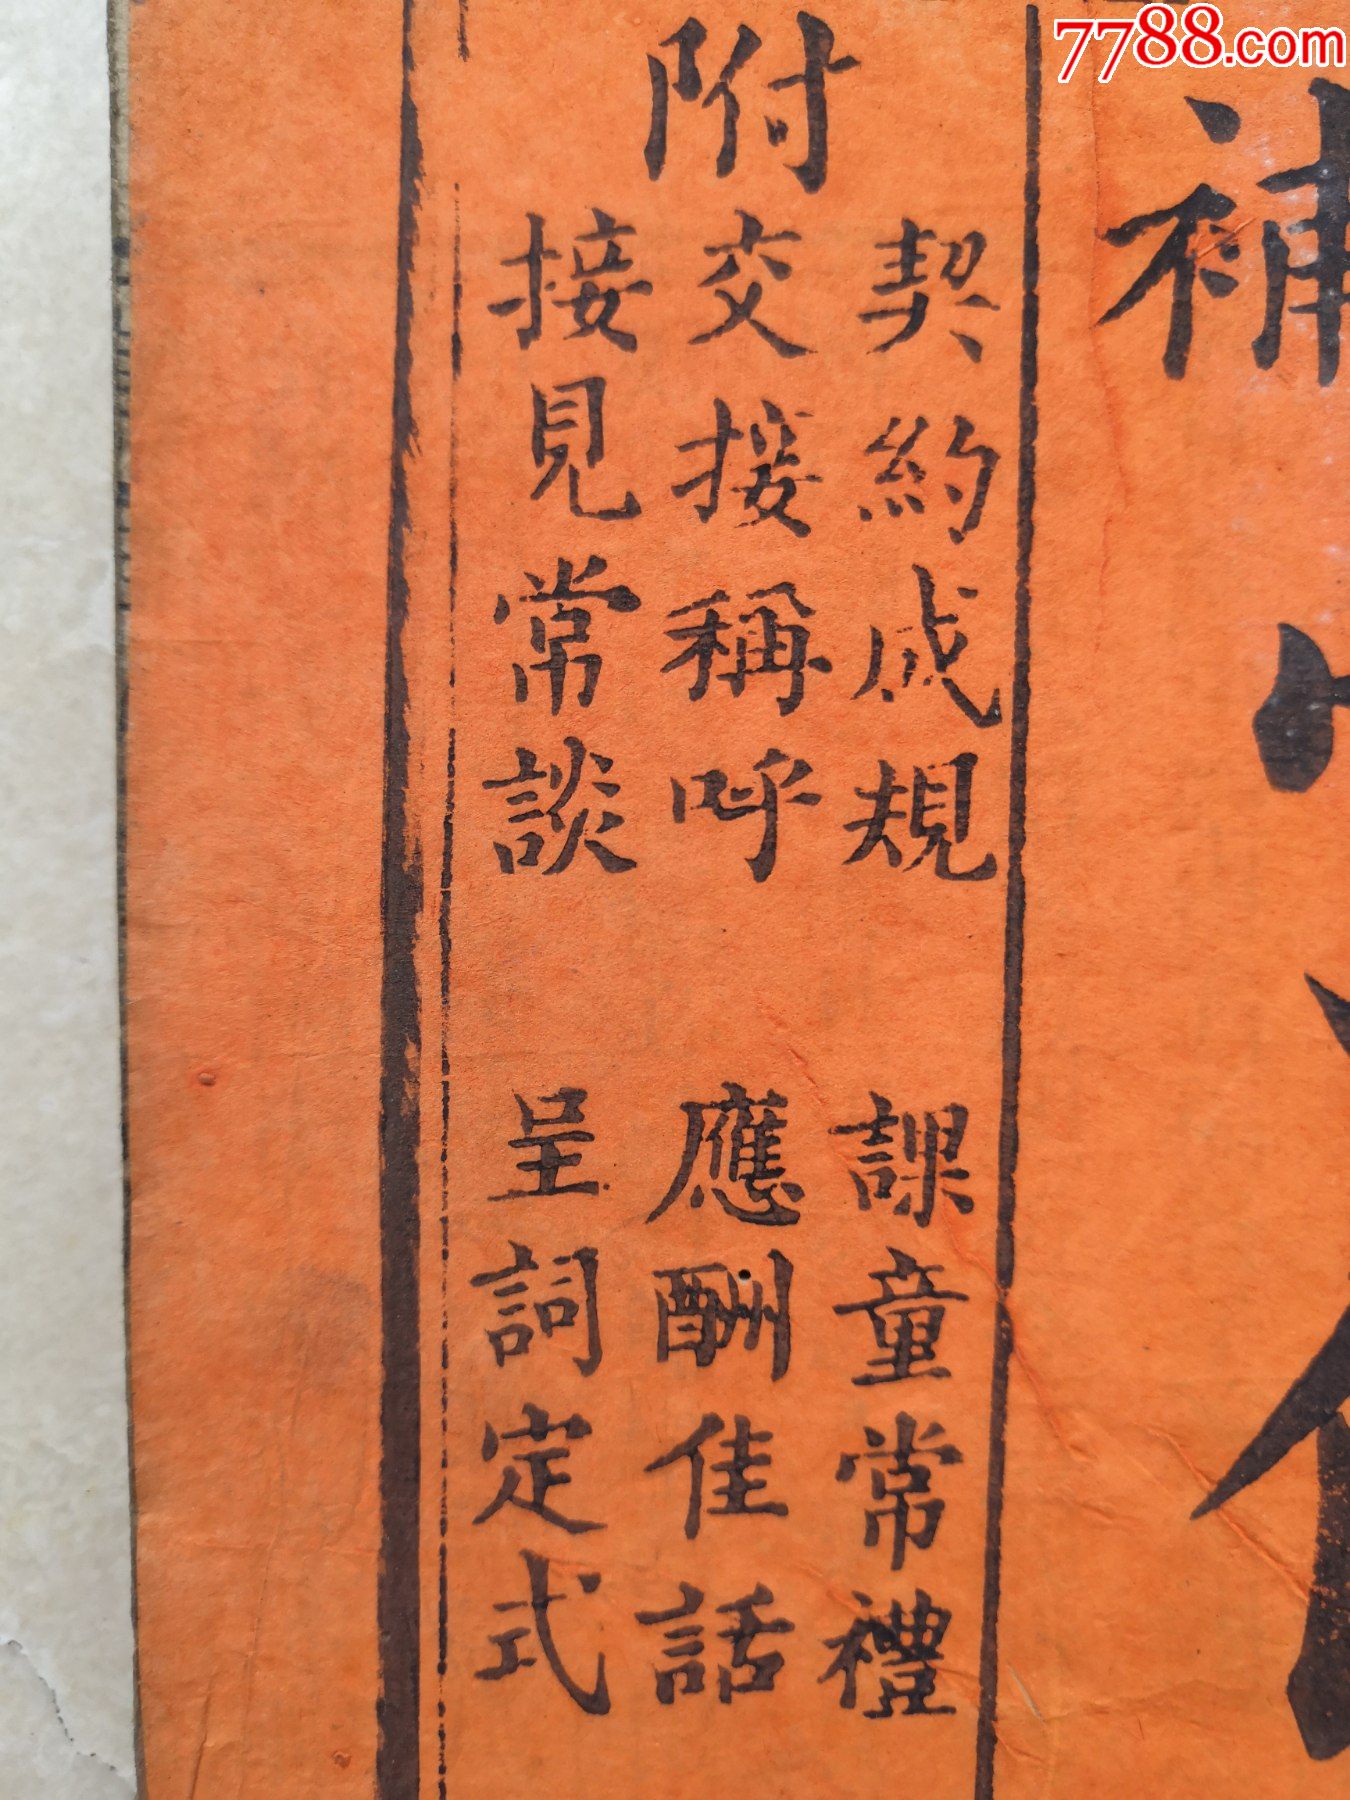 7788.com
補
附
契約成規 課童常禮
交接稱呼 應酬佳話
接見常談 呈詞定式